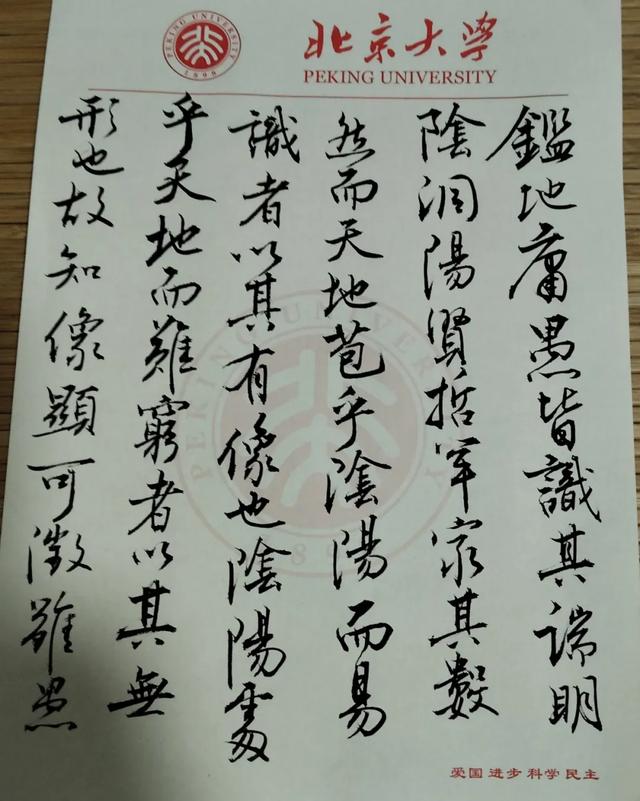 北京大学
PEKING UNIVERSITY
PEKING UNIVERSITY
1898
鑑地庸愚皆識其端明
陰洞陽賢哲罕窮其數
然而天地苞乎陰陽而易
識者以其有像也陰陽處
乎天地而難窮者以其無
形也故知像顯可徵雖愚
PEKING UNIVERSITY
1898
爱国 进步 科学 民主